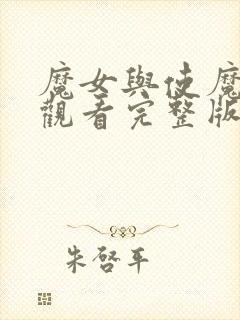 魔女與使魔
觀看完整版
朱啓平